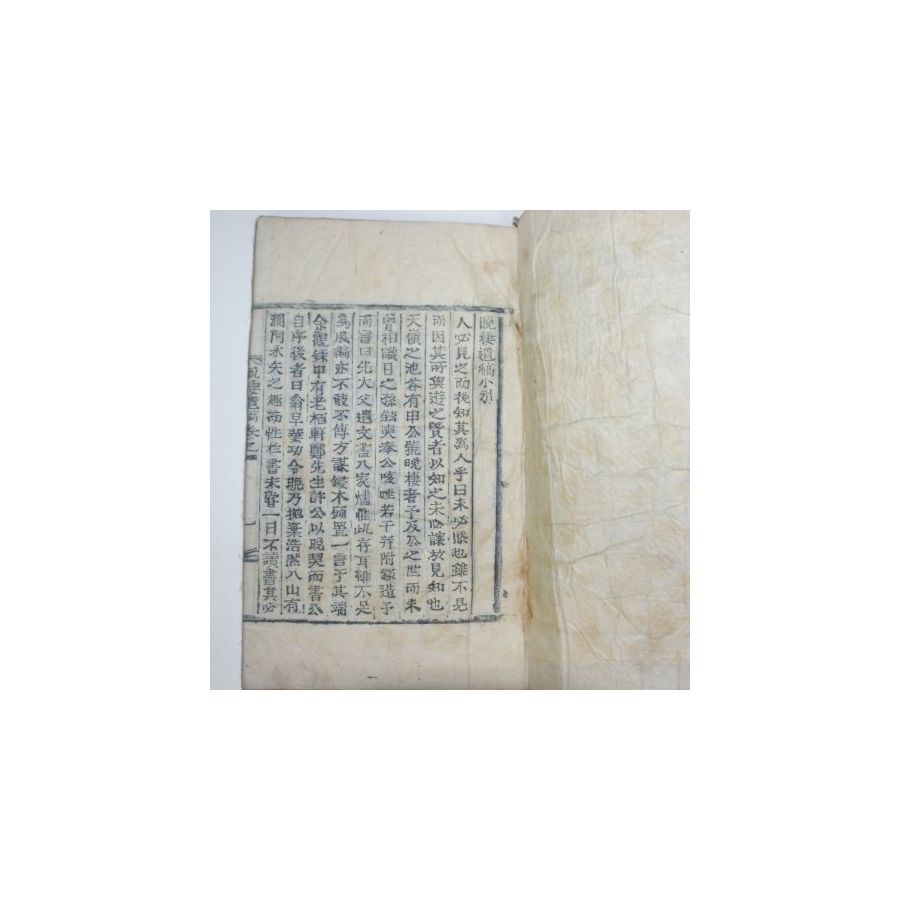 晩棲遺稿小引
人必見之而後知其爲人乎曰未必然也雖不是
而因其所與遊之賢者以知之未必讓於見知也
天嶺之池谷有申公號晩棲者予及公之世而未
曾相識日之孫錫奭奉公咳唾若干幷附錄造予
而言曰先大父遺文盡入家燼惟此存耳雖不足
爲成編亦不敢不傳方謀鋟木願置一言于其端
余觀錄中有老栢軒鄭先生許公以晩契而書公
自序後者曰翁早業功令晩乃抛棄浩然入山有
澗阿永矢之趣而性好書未嘗一日不讀書其必
晩棲遺稿卷之
一